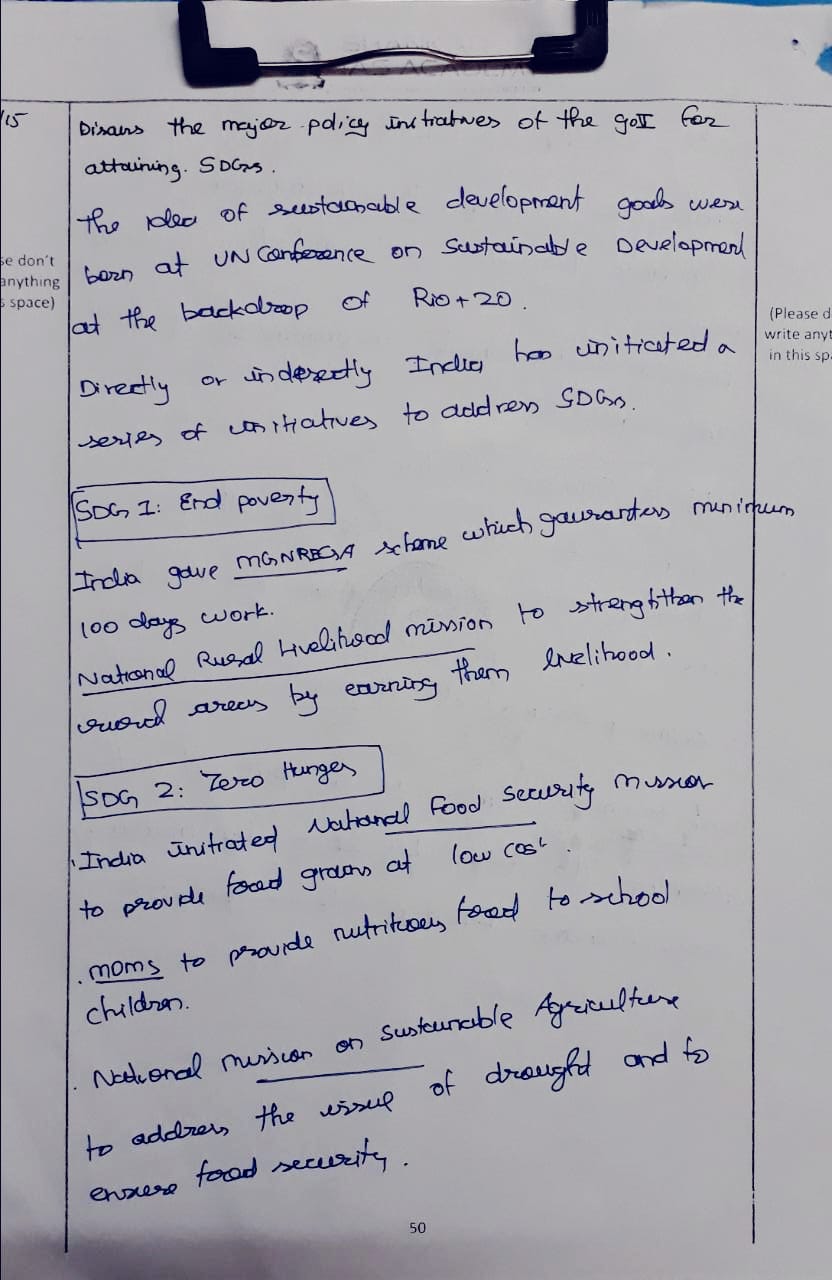 115
Disauss the major policy initiatives of the goII for
attaining. SDGs.
The idea of sustainable development goals were
born at UN Conference on Sustainable Development
at the backdrop of Rio+20.
Directly or inderectly India has initicated a
series of initiatives to address SDGs.
SDG 1: End poverty
India gave MGNREGA scheme which gaurantess minimum
100 days work.
National Rural Livelihood mission to strenghthen the
rural areas by earning them livelihood.
SDG 2: Zero Hunger
India initrated National food security mission
to provide food grains at low cost.
. MDMS to provide nutritious food to school
children.
. National mission on Sustainable Agriculture
to address the issue of drought and to
ensure food security.
se don't
anything
s space)
(Please d
write anyt
in this spa
50